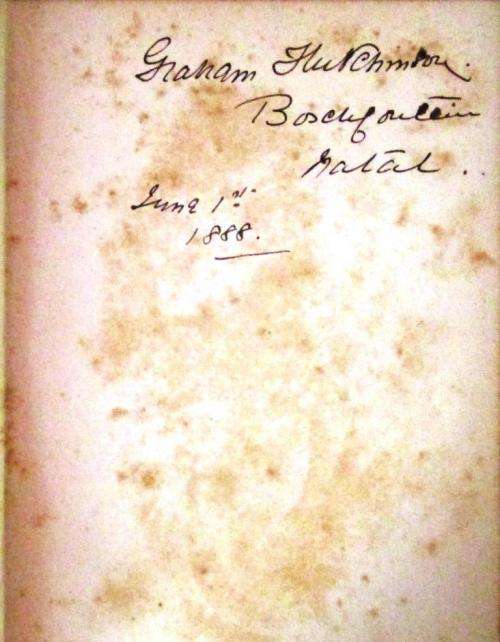 Graham Hutchinson.
Boschfontein
Natal.
June 1st
1888.